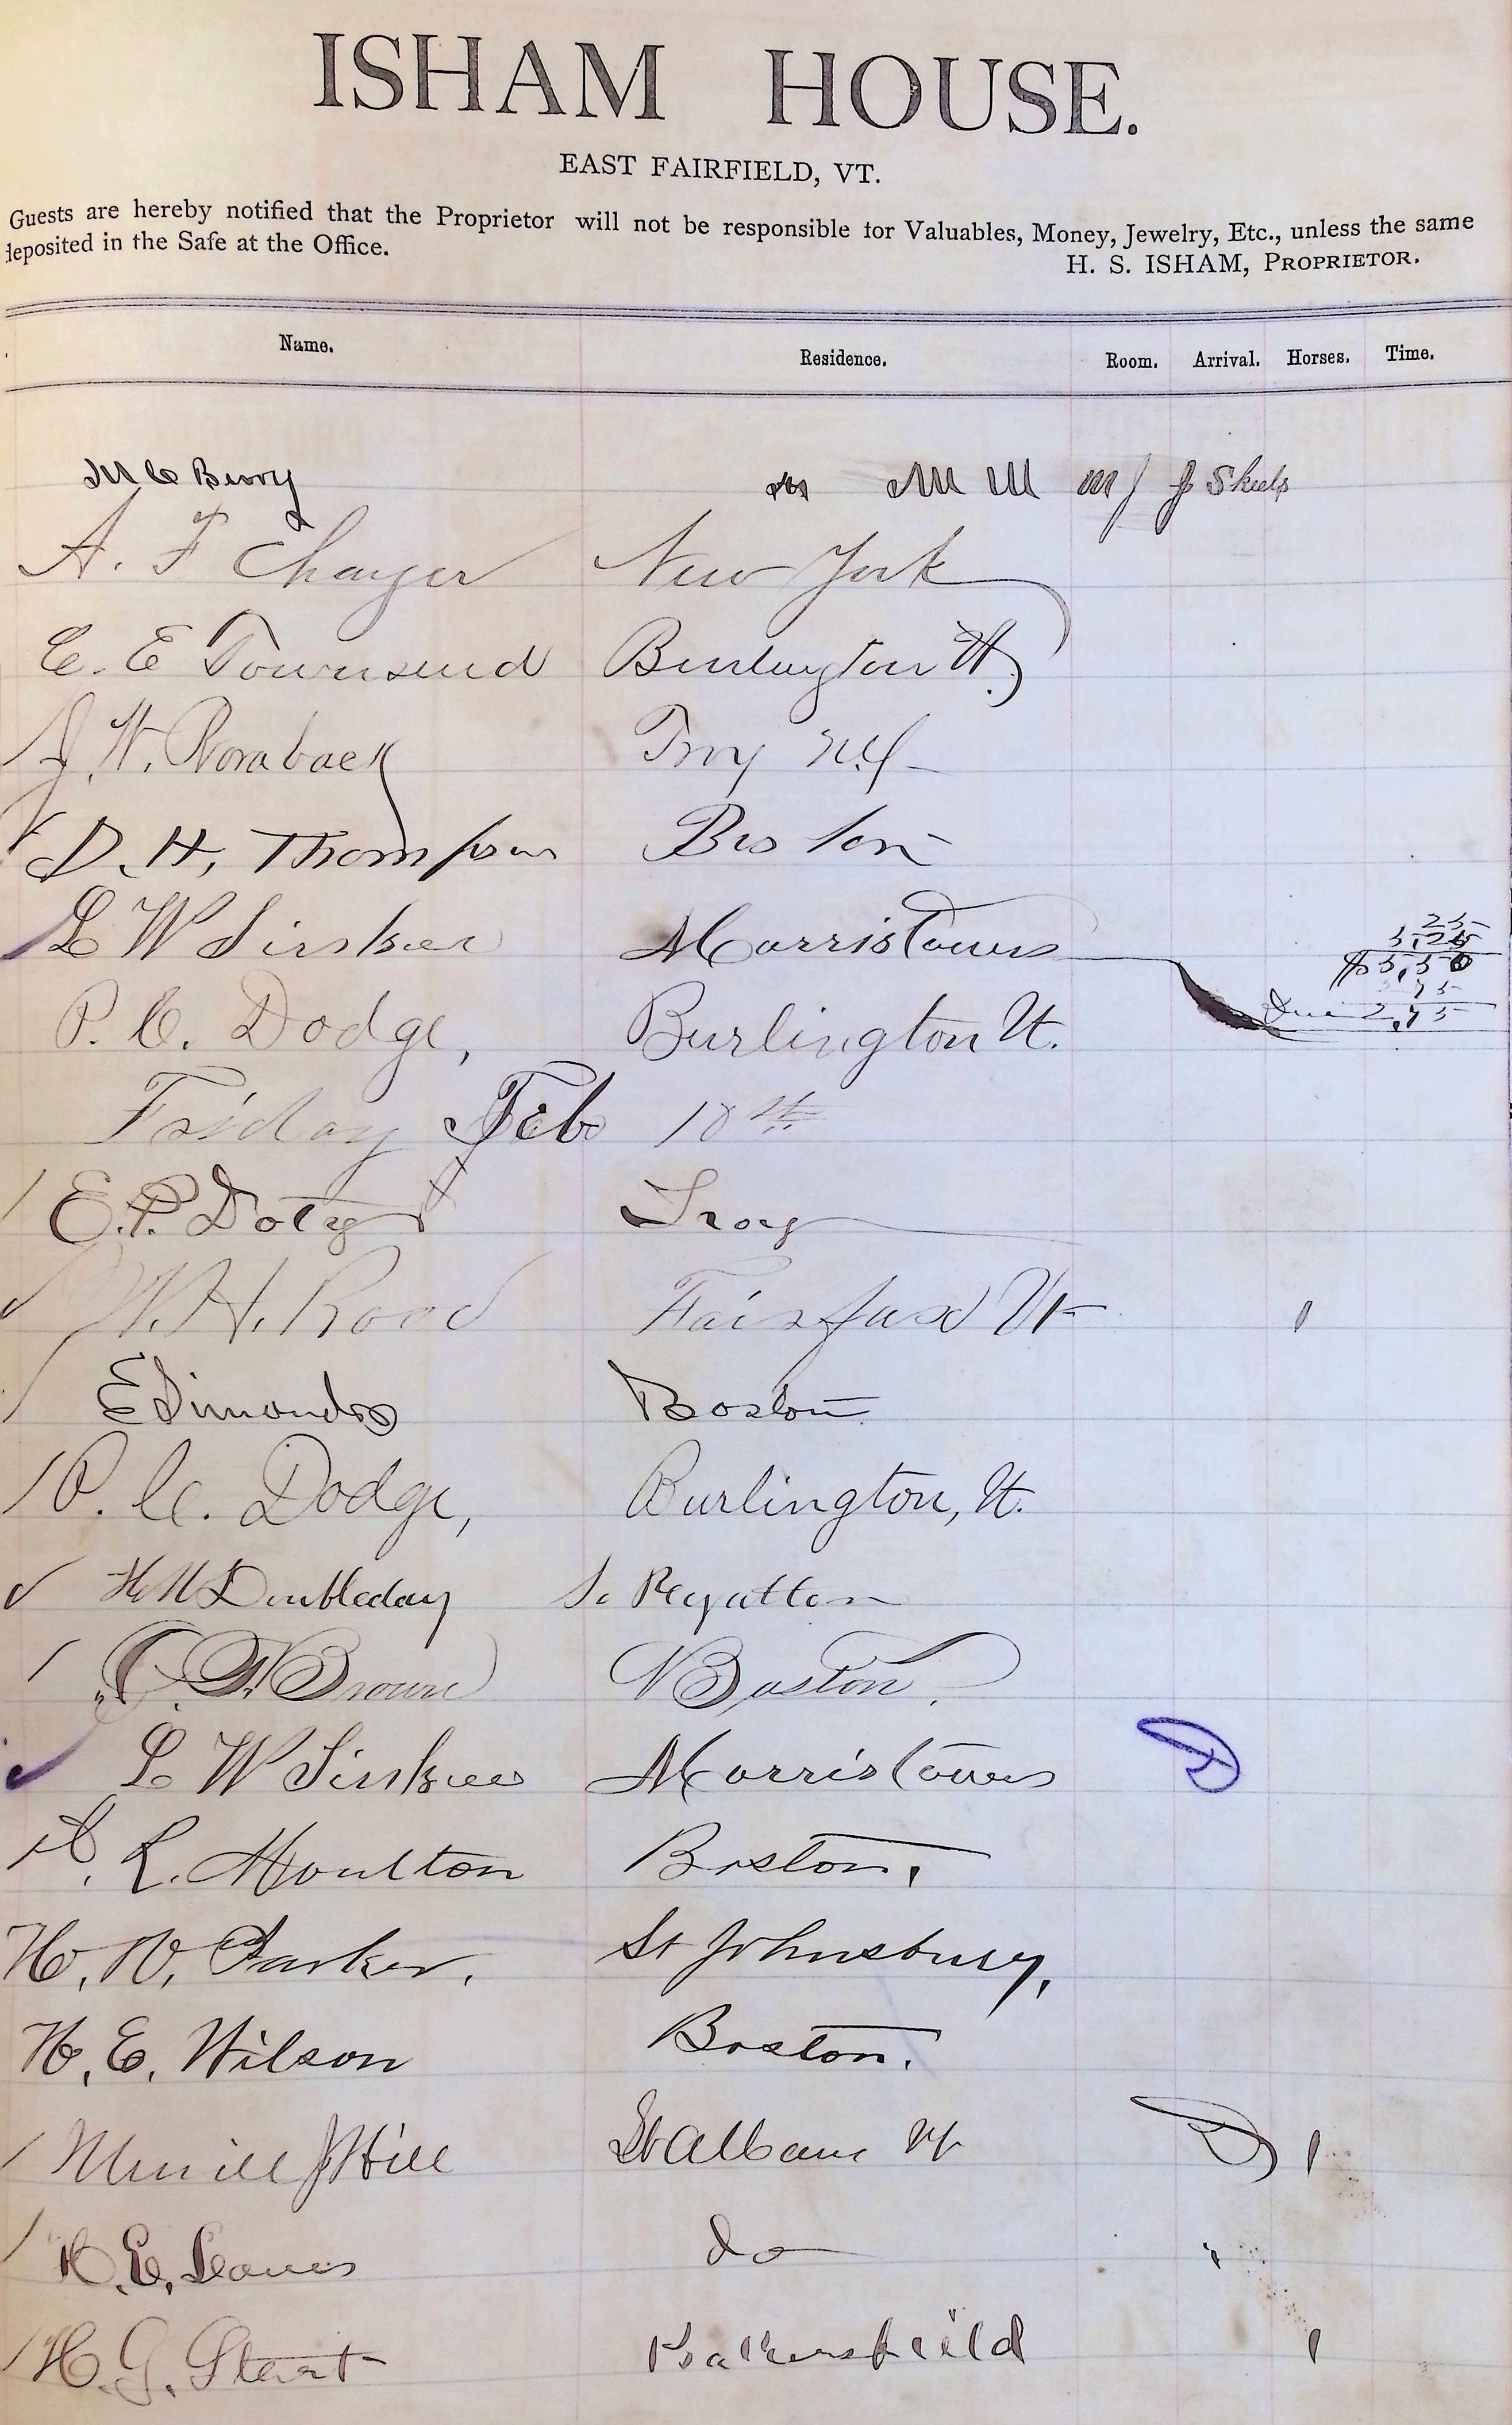 ISHAM HOUSE.
EAST FAIRFIELD, VT.
Guests are hereby notified that the Proprietor will not be responsible for Valuables, Money, Jewelry, Etc., unless the same
deposited in the Safe at the Office.
H. S. ISHAM, PROPRIETOR.
Name. Residence. Room. Arrival. Horses. Time.
M C Berry
A. F Chayer New York
C. E Townsend Burlington Vt
J. W. Roraback Troy N.Y.
D. H. Thompson Boston
L W Morristown
25
5.25
$5.50
Due 2.75
P. C. Dodge, Burlington Vt.
Friday Feb 10th
E. P. Doty Troy
W. H. Rood Fairfax Vt 1
E Simonds Boston
P. C. Dodge, Burlington, Vt.
H N Doubleday So Royalton
F. Brown Boston.
L W Morristown D
L. Moulton Boston.
H. N. Parker. St Johnsbury,
H. E. Wilson Boston.
Merrill J Hill St Albans Vt D 1
H. E. do "
H. G. Bakersfield 1